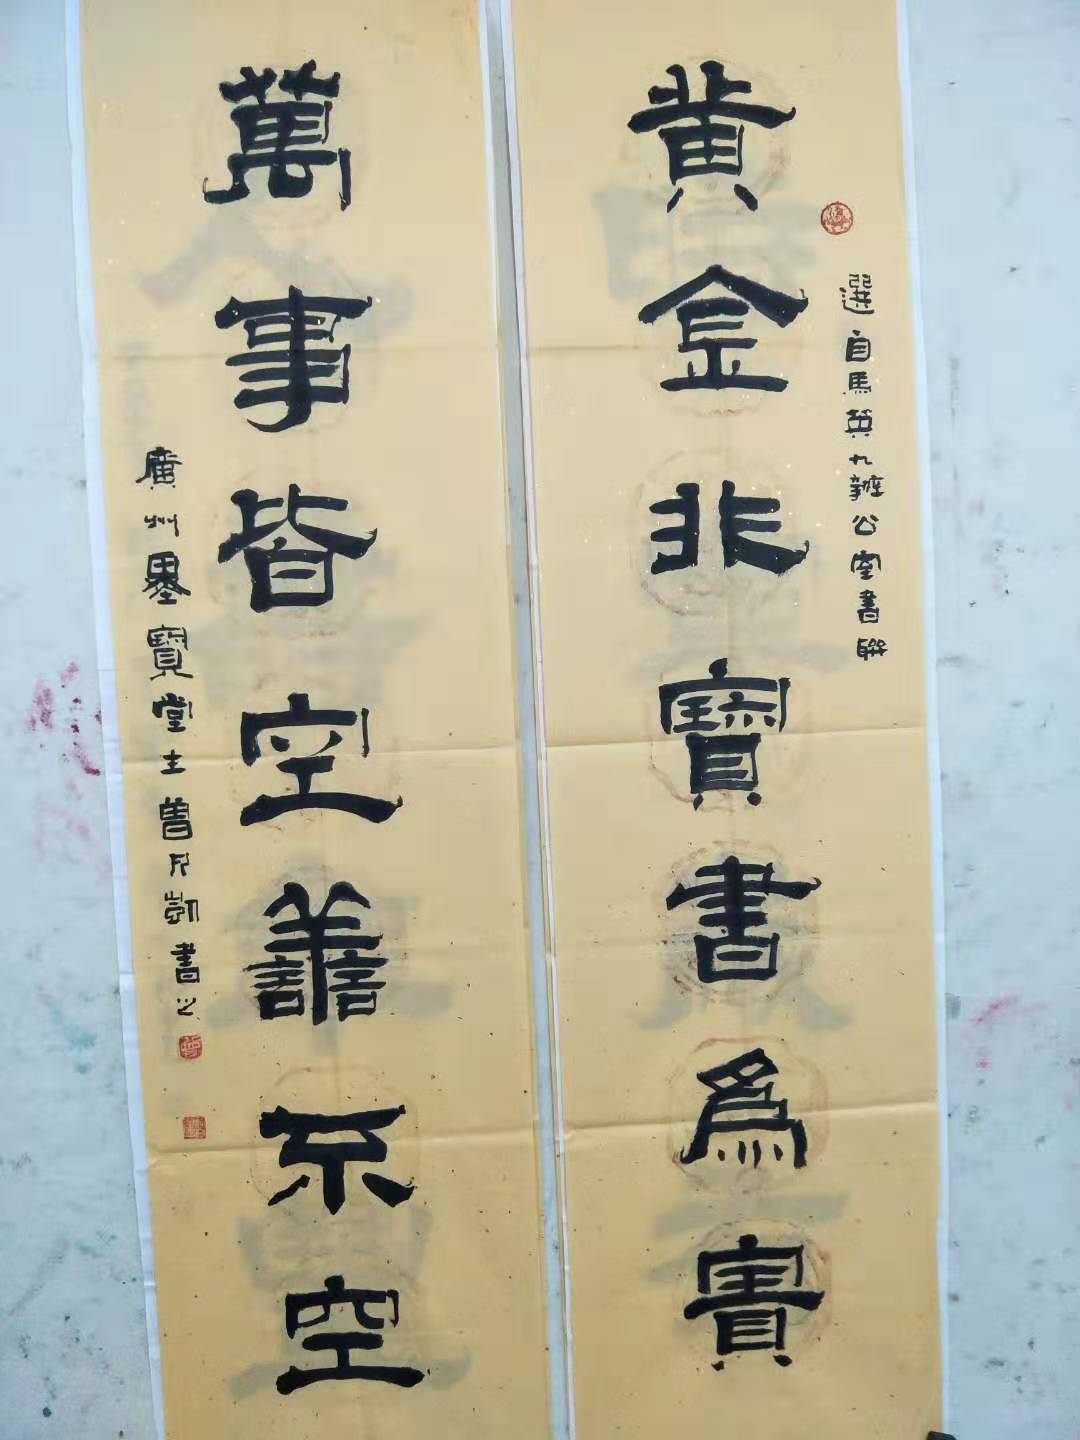 選自馬英九辦公室書聯
黃金非寶書為寶
萬事皆空善不空
廣州墨寶堂主曾凡凱書之